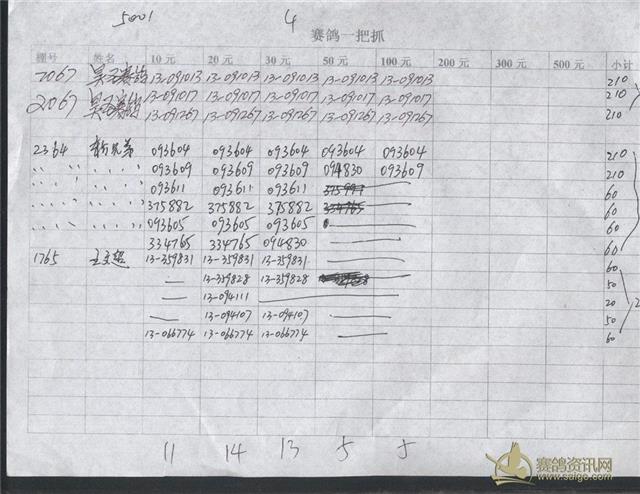 5001 4
赛鸽一把抓
棚号 姓名 10元 20元 30元 50元 100元 200元 300元 500元 小计
13-091013 13-091013 13-091013 13-091013 13-091013 210
2067 13-091017 13-091017 13-091017 13-091017 13-091017 210
13-091267 13-091267 13-091267 13-091267 13-091267 210
2364 093604 093604 093604 093604 093604 210
093609 093609 093609 094830 093609 210
093611 093611 093611 60
375882 375882 375882 60
093605 093605 093605 60
334765 334765 094830 60
1765 13-359831 13-359831 13-359831 60
13-359828 13-359828 50
13-094111 20
13-094107 13-094107 50
13-066774 13-066774 13-066774 60
11 14 13 5 5
赛鸽资讯网
www.saige.com